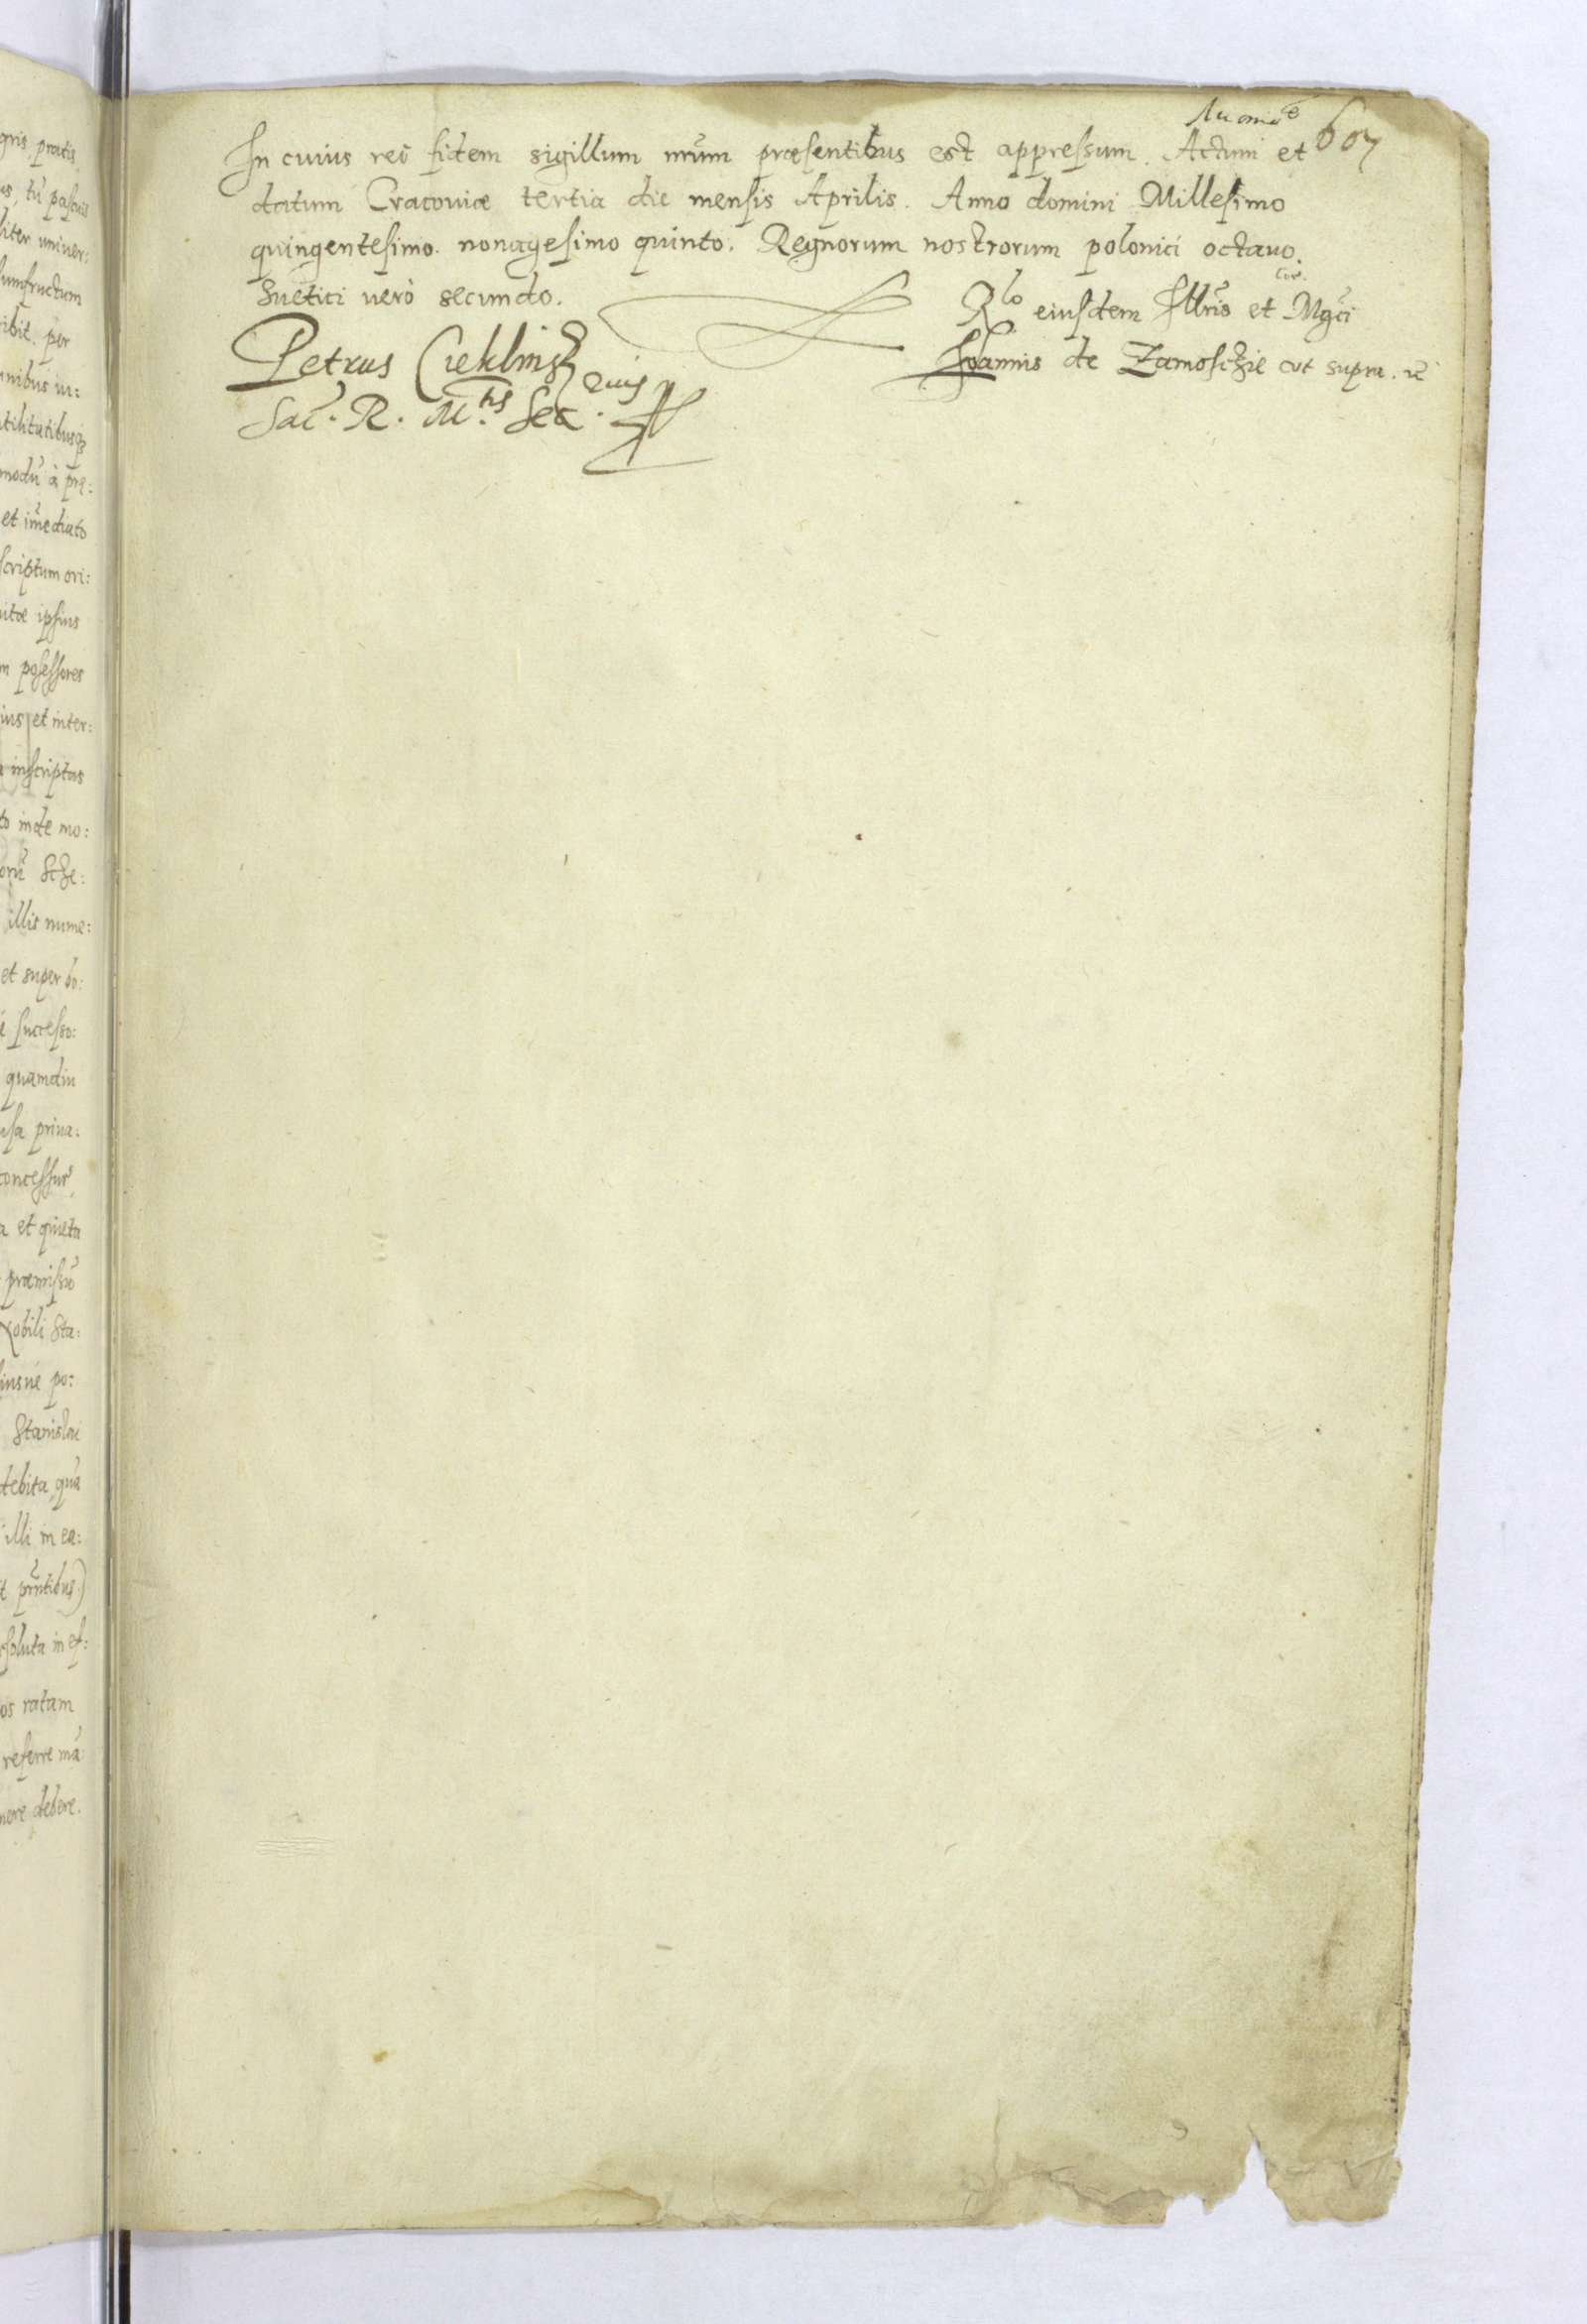 607
In cuius rei fidem sigillum nrũm præsentibus est appressum. Actum et
datum Cracoviæ tertia die mensis Aprilis. Anno domini Millesimo
quingentesimo. nonagesimo quinto. Regnorum nostrorum polonici octauo.
Suetici uerò secundo.
Rlo eiusdem Illris et Mgci
Ioannis de Zamosczie ut supra.
Petrus Cieklinsky
Sac. R. M.tis Sec.
gris, pratis,
as, tũ pascuis
liter univer:
sumfructum
ibit. per
mnibus in:
tilitatibusq3
modũ à præ:
et imẽdiato
scriptum ori:
uitæ ipsius
m posessores
ius et inter:
inscriptas
to inde mo:
orũ Scze:
illis nume:
et super bo:
successo:
quamdiu
usa priua:
concessur
a et quieta
præmissũ
Nobili Sta:
iusue po:
Stanislai
debita, quã
illi in ea:
prñtibus)
soluta in ef:
os ratam
referre mã
nere debere.